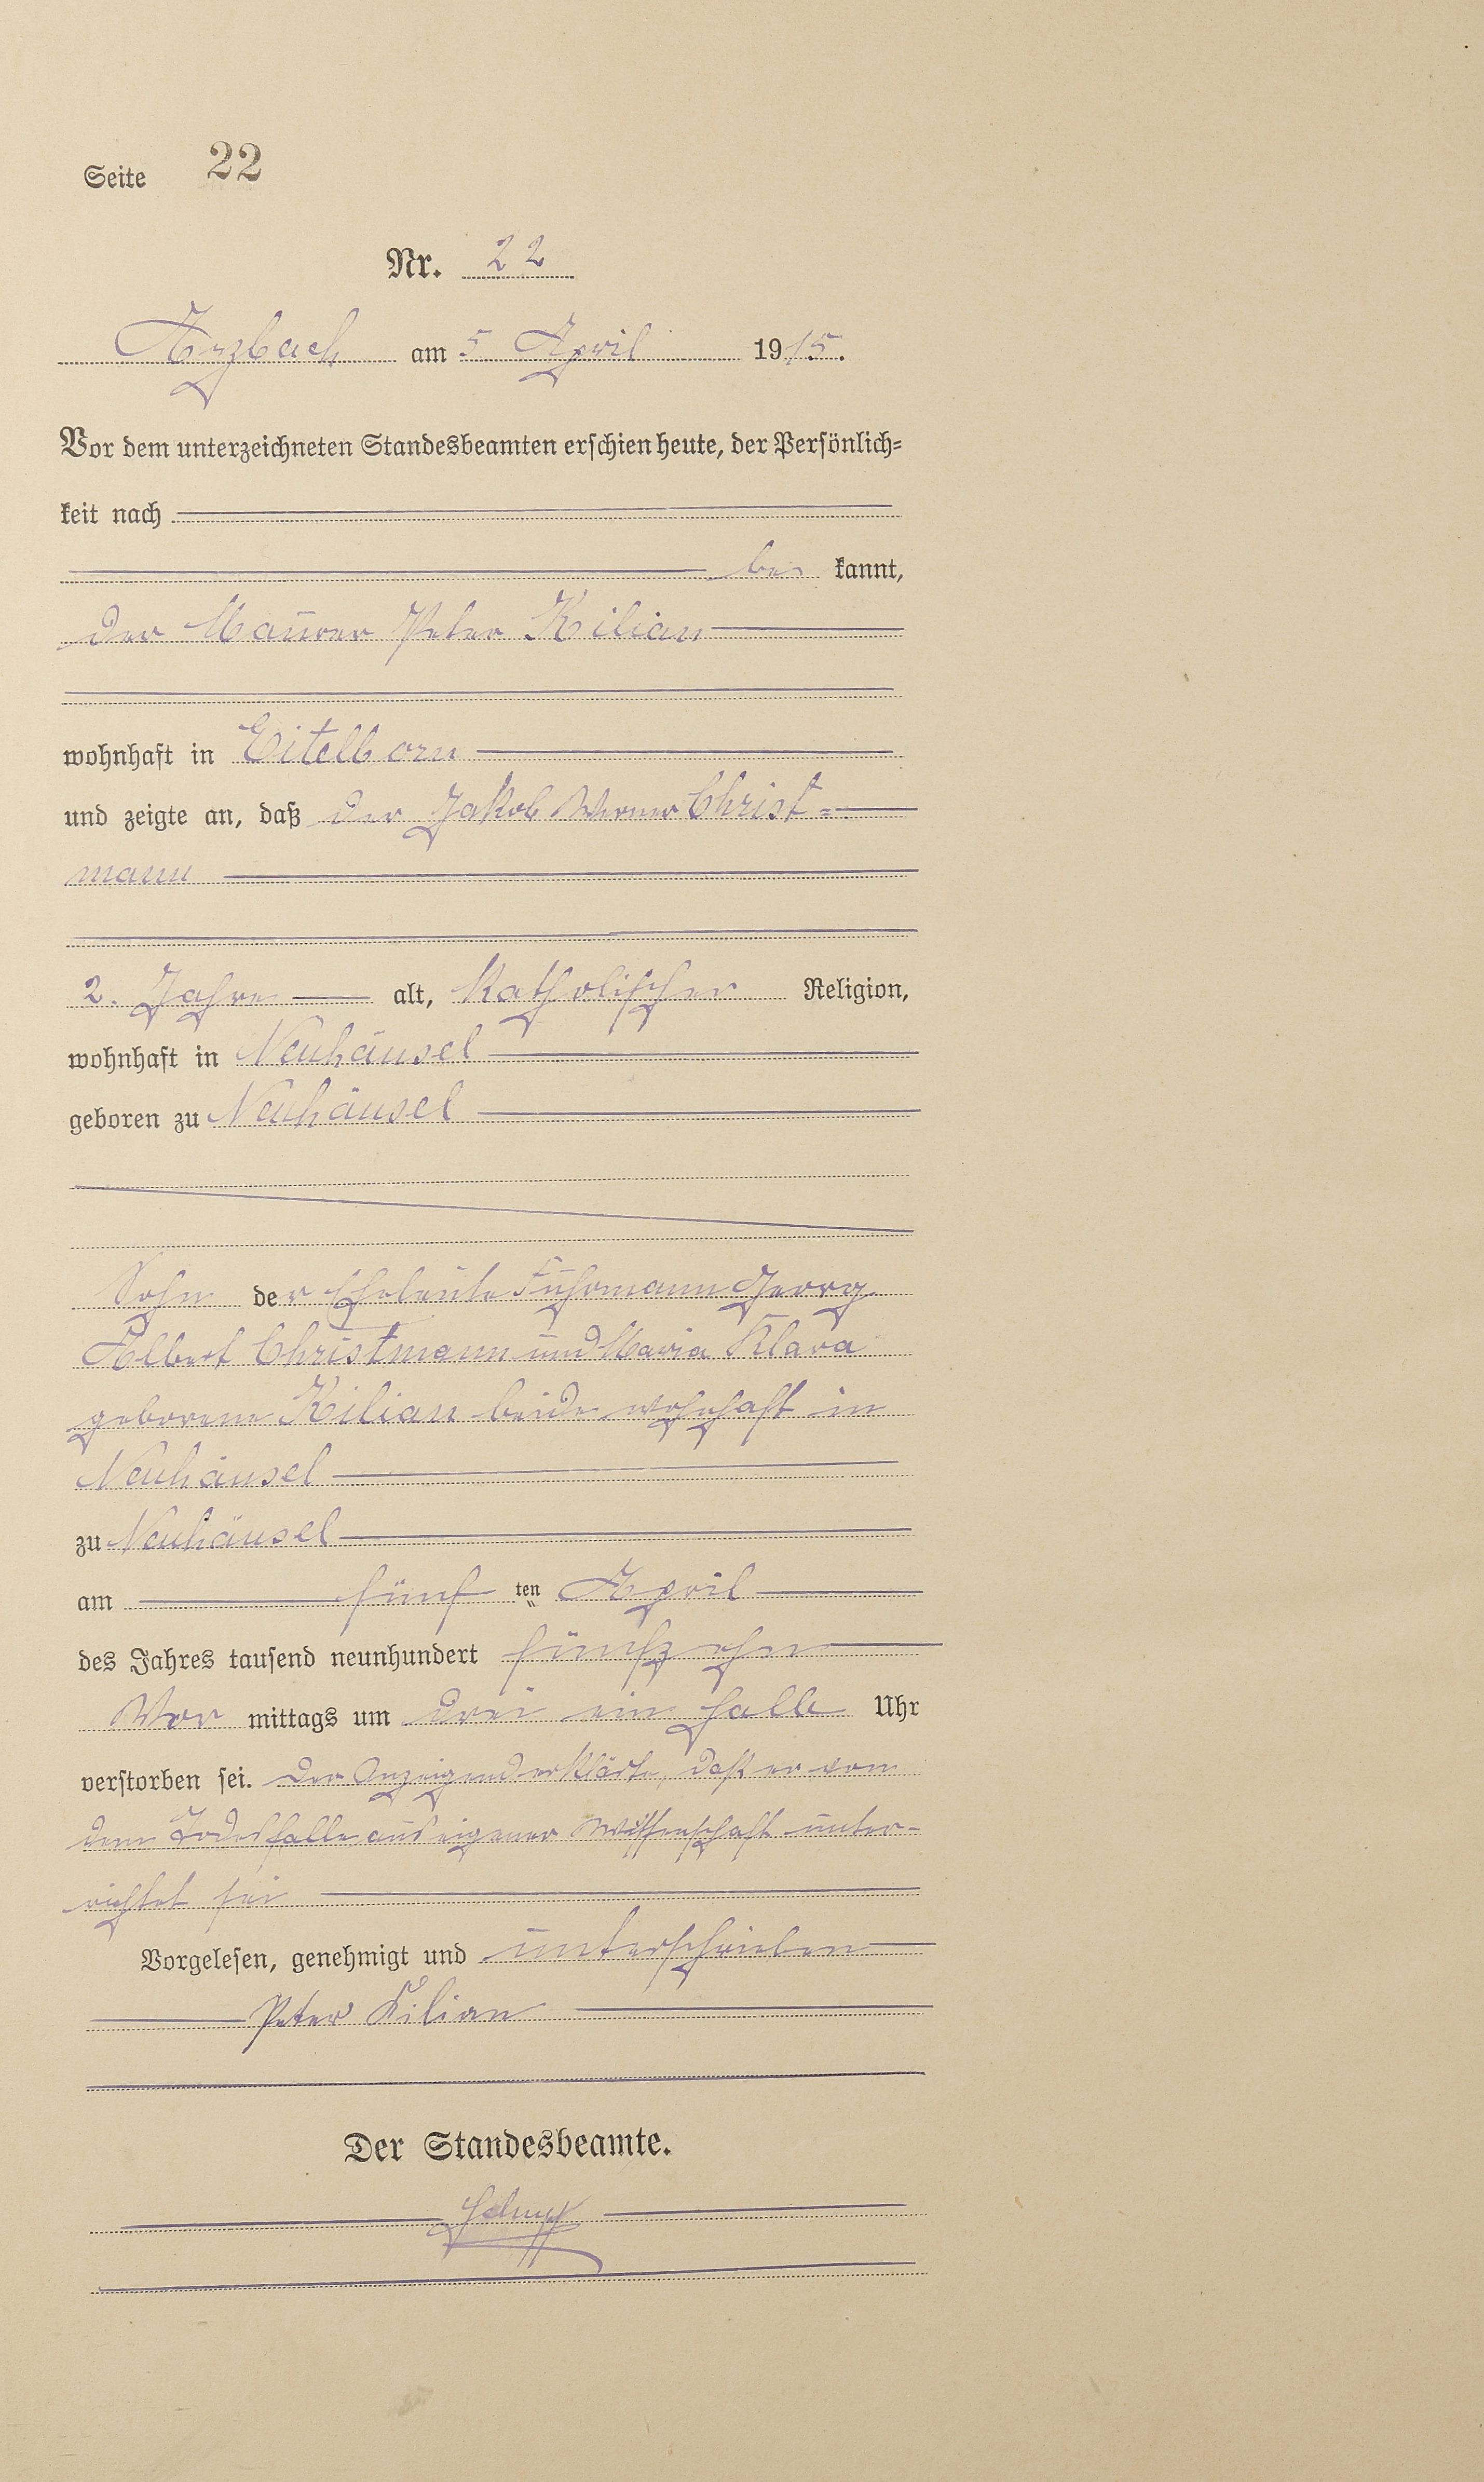 Seite 22
Nr. 22
Arzbach am 5 April 1915.
Vor dem unterzeichneten Standesbeamten erschien heute, der Persönlich=
keit nach
be kannt,
der Maurer Peter Kilian
wohnhaft in Eitelborn
und zeigte an, daß der Jakob Werner Christ=
mann
2. Jahre alt, Katholischer Religion,
wohnhaft in Neuhäusel
geboren zu Neuhäusel
Sohn der Eheleute Fuhrmann Georg
Albert Christmann und Maria Klara
geborene Kilian beide wohnhaft in
Neuhäusel
zu Neuhäusel
am fünf ten April
des Jahres tausend neunhundert fünfzehn
Vor mittags um drei ein halb Uhr
verstorben sei. Der Anzeigend erklärte, daß er von
dem Todesfalle aus eigener Wissenschaft unter-
richtet sei
Vorgelesen, genehmigt und unterschrieben
Peter Kilian
Der Standesbeamte.